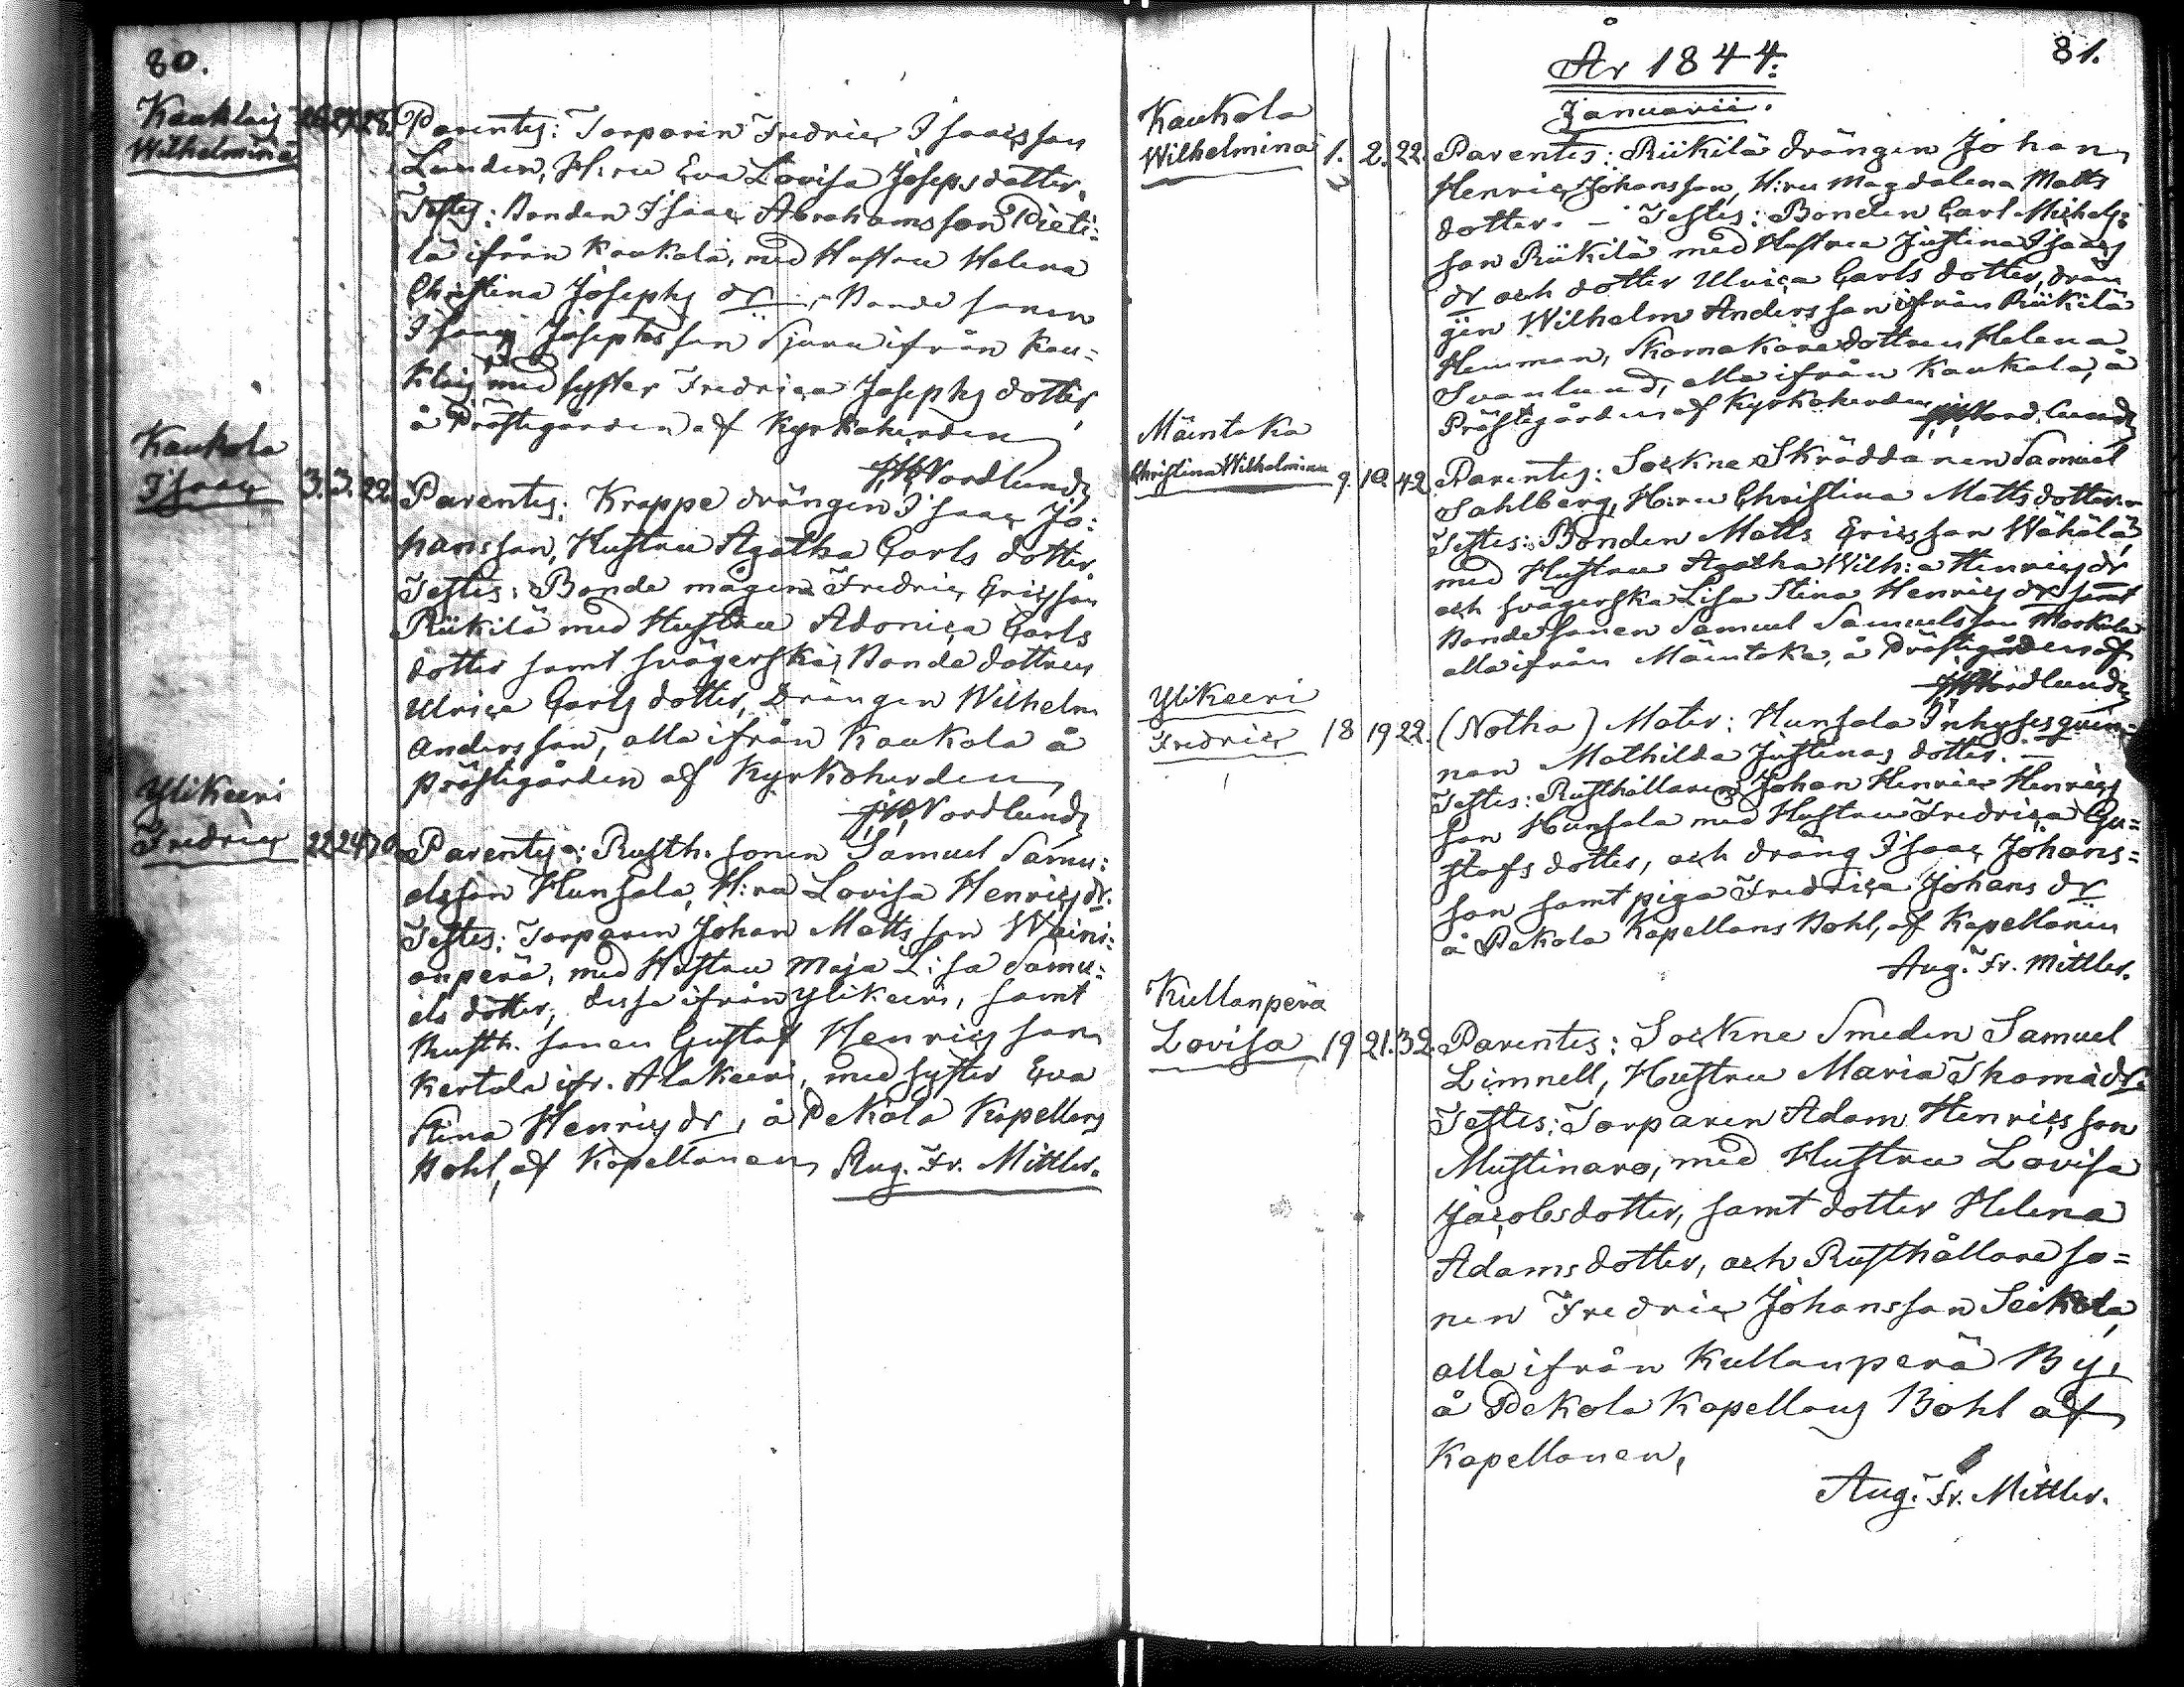 80.
Kauklaij
Wilhelmina 26. 27. 28.
Parentes: Torparen Fredric Isaacsson
Lunden, H:ru Eva Lovisa Josepsdotter,
Testes: Bonden Isaac Abrahamsson Pieti-
lä ifrån Kaukola, med Hustru Helena
Christina Josephs dr, Bonde sonen
Isaac Josephsson Sjuru ifrån Kau-
klaij med syster Fredrica Josephs dotter,
å Prästegården af Kyrkoherden
Nordlund
Kaukola
Isaac 3. 3. 22.
Parentes: Krappe drängen Isaac Jo-
hansson, Hustru Agatha Carls dotter
Testes: Bonde mågen Fredric Ericsson
Riikilä med Hustru Adonica Carls
dotter samt svägerska, Bonde dottren
Ulrica Carls dotter, Drängen Wilhelm
Andersson, alla ifrån Kaukola å
prästegården af Kyrkoherden
Nordlund
Ylikeeri
Fredric 22 24
Parentes: Rusth. sonen Samuel Samu-
elsson Hunsala, H:ru Lovisa Henrics dr.
Testes: Torparen Johan Mattsson Waini-
anperä, med Hustru Maja Lisa Samu-
els dotter, dessa ifrån Ylikeeri, samt
Rusth. sonen Gustaf Henrics son
Kertala ifr. Alakeeri, med syster Eva
Stina Henrics dr, å Pekola Kapellans
Bohl, af Kapellanen, Aug. Fr. Mittler.
81.
År 1844.
Januarii.
Kaukola
Wilhelmina 1. 2. 22.
Parentes: Riikilä drängen Johan
Henric Johansson, H:ru Magdalena Matts
dotter. – Testes: Bonden Carl Michels-
son Riikilä med Hustru Justina Isaacs
dr och dotter Ulrica Carls dotter, drän
gen Wilhelm Andersson ifrån Riikilä
Hemman, Skomakare dottren Helena
Svanlund, alla ifrån Kaukola, å
Prästegården af Kyrkoherden Nordlund
Mäentaka
Christina Wilhelmina 9. 10. 42.
Parentes: Sockne Skräddaren Samuel
Sahlberg, H:ru Christina Mattsdotter. –
Testes: Bonden Matts Ericsson Wähälä,
med Hustru Agatha Wilh:a Henrics dr
och svägerska Lisa Stina Henrics dr samt
Bonde sonen Samuel Samuelsson
alla ifrån Mäentaka, å Prästegården af
Nordlund
Ylikeeri
Fredric 18 19 22.
(Notha) Mater: Hunsala Inhyses qvin-
nan Mathilda Justinas dotter. –
Testes: Rusthållaren Johan Henric Henrics
son Hunsala med Hustru Fredrica Gu-
stafs dotter, och dräng Isaac Johans-
son samt piga Fredrica Johans dr
å Pekola Kapellans Bohl, af Kapellanen
Aug. Fr. Mittler.
Kullanperä
Lovisa 19 21. 32.
Parentes: Sockne Smeden Samuel
Limnell, Hustru Maria Thomä dr.
Testes: Torparen Adam Henricsson
Mustinaro, med Hustru Lovisa
Jacobsdotter, samt dotter Helena
Adams dotter, och Rusthållare so-
nen Fredric Johansson Seikola,
alla ifrån Kullanperä By,
å Pekola Kapellans Bohl af
Kapellanen,
Aug. Fr. Mittler.